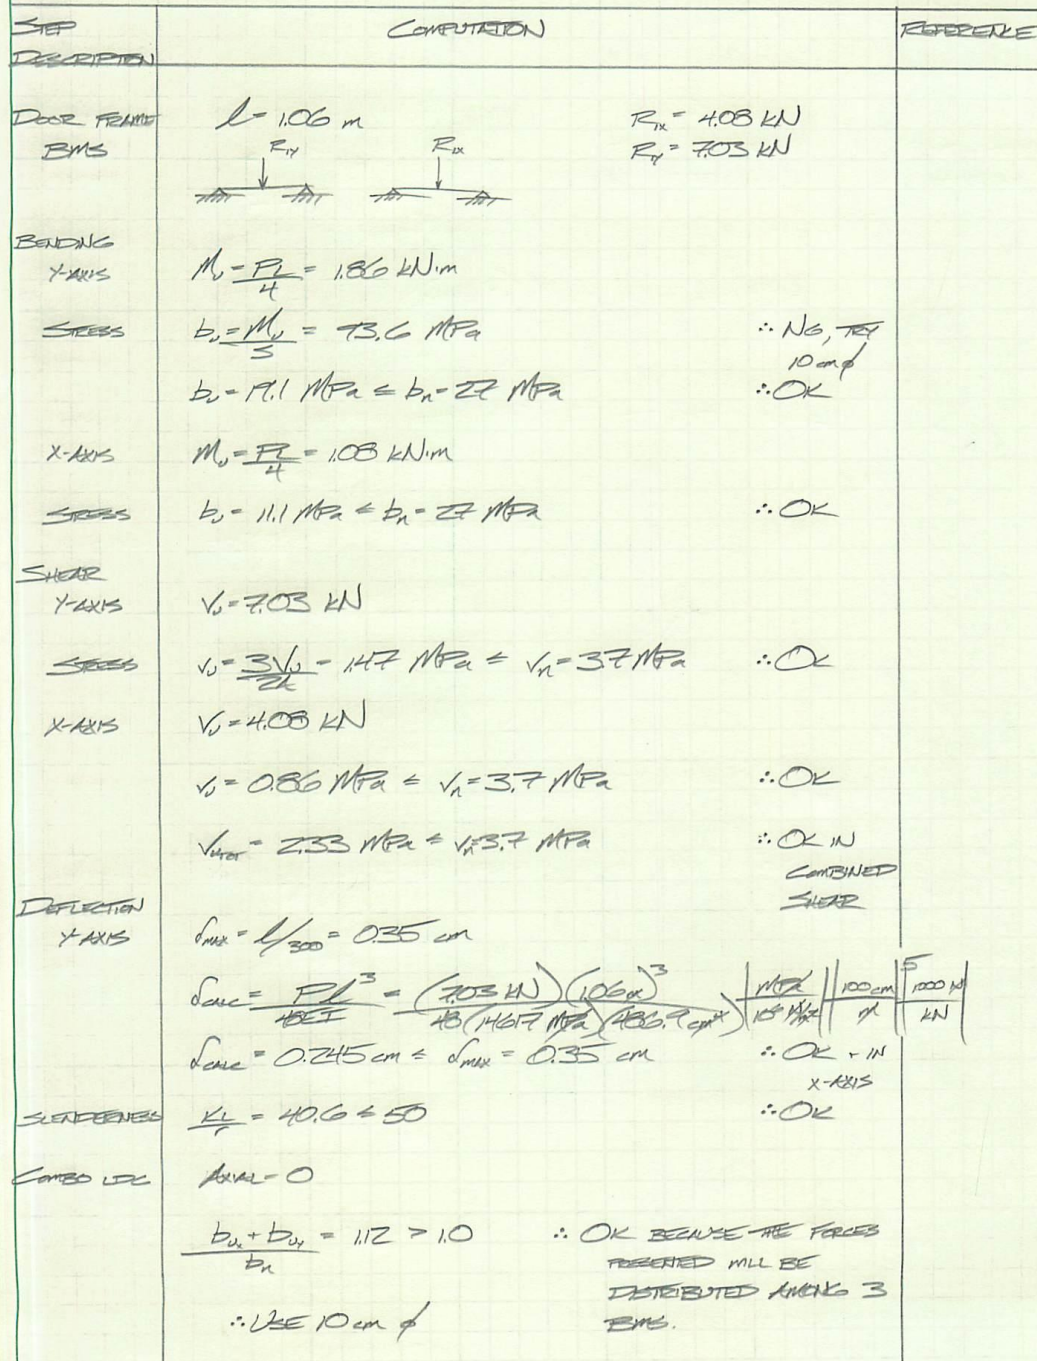 STEP DESCRIPTION COMPUTATION REFERENCE
DOOR FRAME BMS
l = 1.06 m
R1x = 4.08 kN
R1y = 7.03 kN
R1y R1x
BENDING
Y-AXIS Mu = PL/4 = 1.86 kN·m
STRESS bu = Mu/S = 93.6 MPa ∴ NG, TRY 10 cm φ
bu = 19.1 MPa ≤ bn = 27 MPa ∴ OK
X-AXIS Mu = PL/4 = 1.08 kN·m
STRESS bu = 11.1 MPa ≤ bn = 27 MPa ∴ OK
SHEAR
Y-AXIS Vu = 7.03 kN
STRESS vu = 3Vu/2A = 1.47 MPa ≤ vn = 3.7 MPa ∴ OK
X-AXIS Vu = 4.08 kN
vu = 0.86 MPa ≤ vn = 3.7 MPa ∴ OK
vuTOT = 2.33 MPa ≤ vn = 3.7 MPa ∴ OK IN COMBINED SHEAR
DEFLECTION
Y AXIS δmax = l/300 = 0.35 cm
δcalc = Pl³/48EI = (7.03 kN)(1.06 m)³/48(14617 MPa)(486.9 cm⁴) | MPa | 100 cm/m |⁵ 1000 N/kN
δcalc = 0.245 cm ≤ δmax = 0.35 cm ∴ OK + IN X-AXIS
SLENDERNESS KL/r = 40.6 ≤ 50 ∴ OK
COMBO LDG AXIAL = 0
bux + buy/bn = 1.12 > 1.0 ∴ OK BECAUSE THE FORCES
PRESENTED WILL BE
DISTRIBUTED AMONG 3
BMS.
∴ USE 10 cm φ